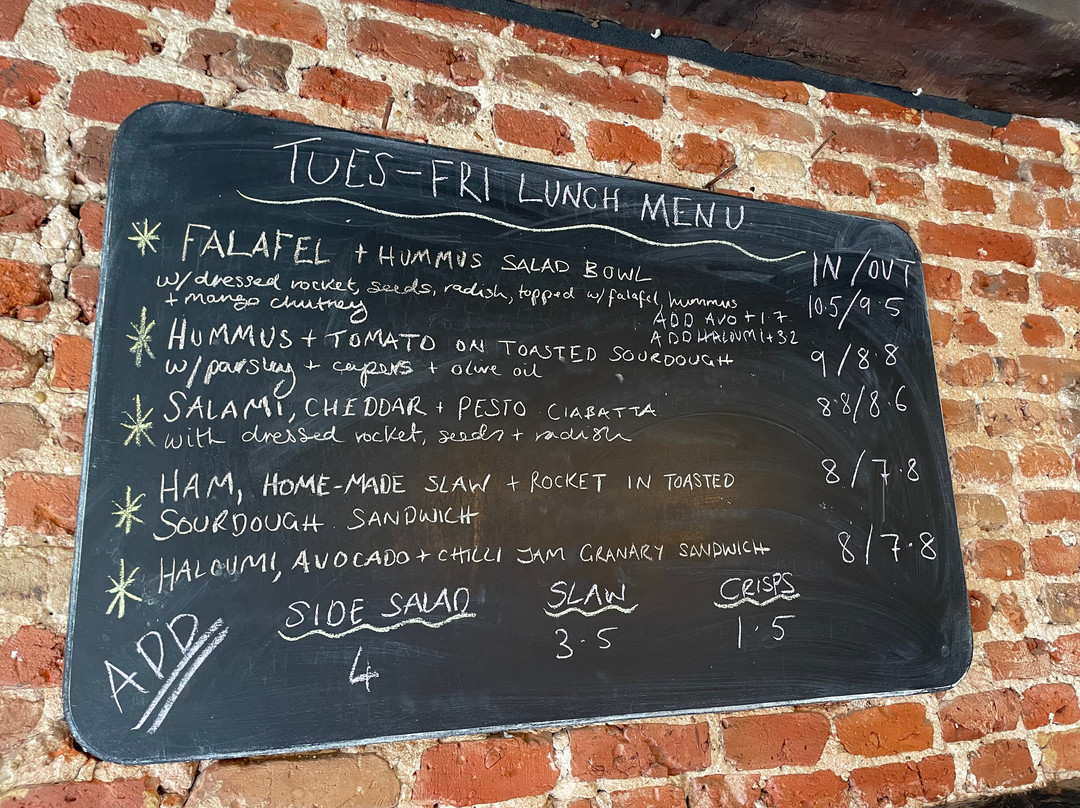 TUES-FRI LUNCH MENU
IN/OUT
FALAFEL + HUMMUS SALAD BOWL 10.5/9.5
w/dressed rocket, seeds, radish, topped w/falafel, hummus
+ mango chutney
ADD AVO +1.7
ADD HALOUMI +3.2
HUMMUS + TOMATO ON TOASTED SOURDOUGH 9/8.8
w/parsley + capers + olive oil
SALAMI, CHEDDAR + PESTO CIABATTA 8.8/8.6
with dressed rocket, seeds + radish
HAM, HOME-MADE SLAW + ROCKET IN TOASTED 8/7.8
SOURDOUGH SANDWICH
HALOUMI, AVOCADO + CHILLI JAM GRANARY SANDWICH 8/7.8
ADD
SIDE SALAD SLAW CRISPS
4 3.5 1.5